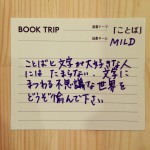 BOOK TRIP
「ことば」
MILD
ことばと文字が大好きな人
にはたまらない、文字に
まつわる不思議な世界を
どうぞ愉んで下さい